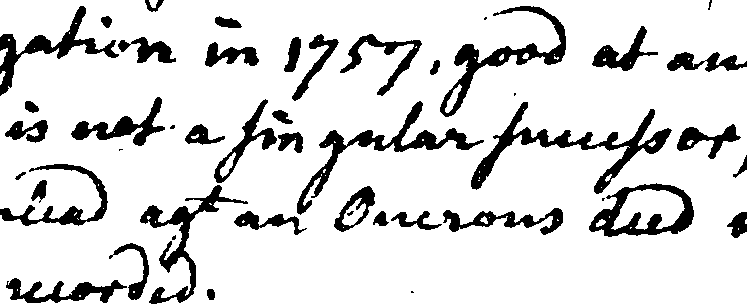 gation in 1757, good at an
is not a singular successor,
plead agt an Onerous deed
recorded.